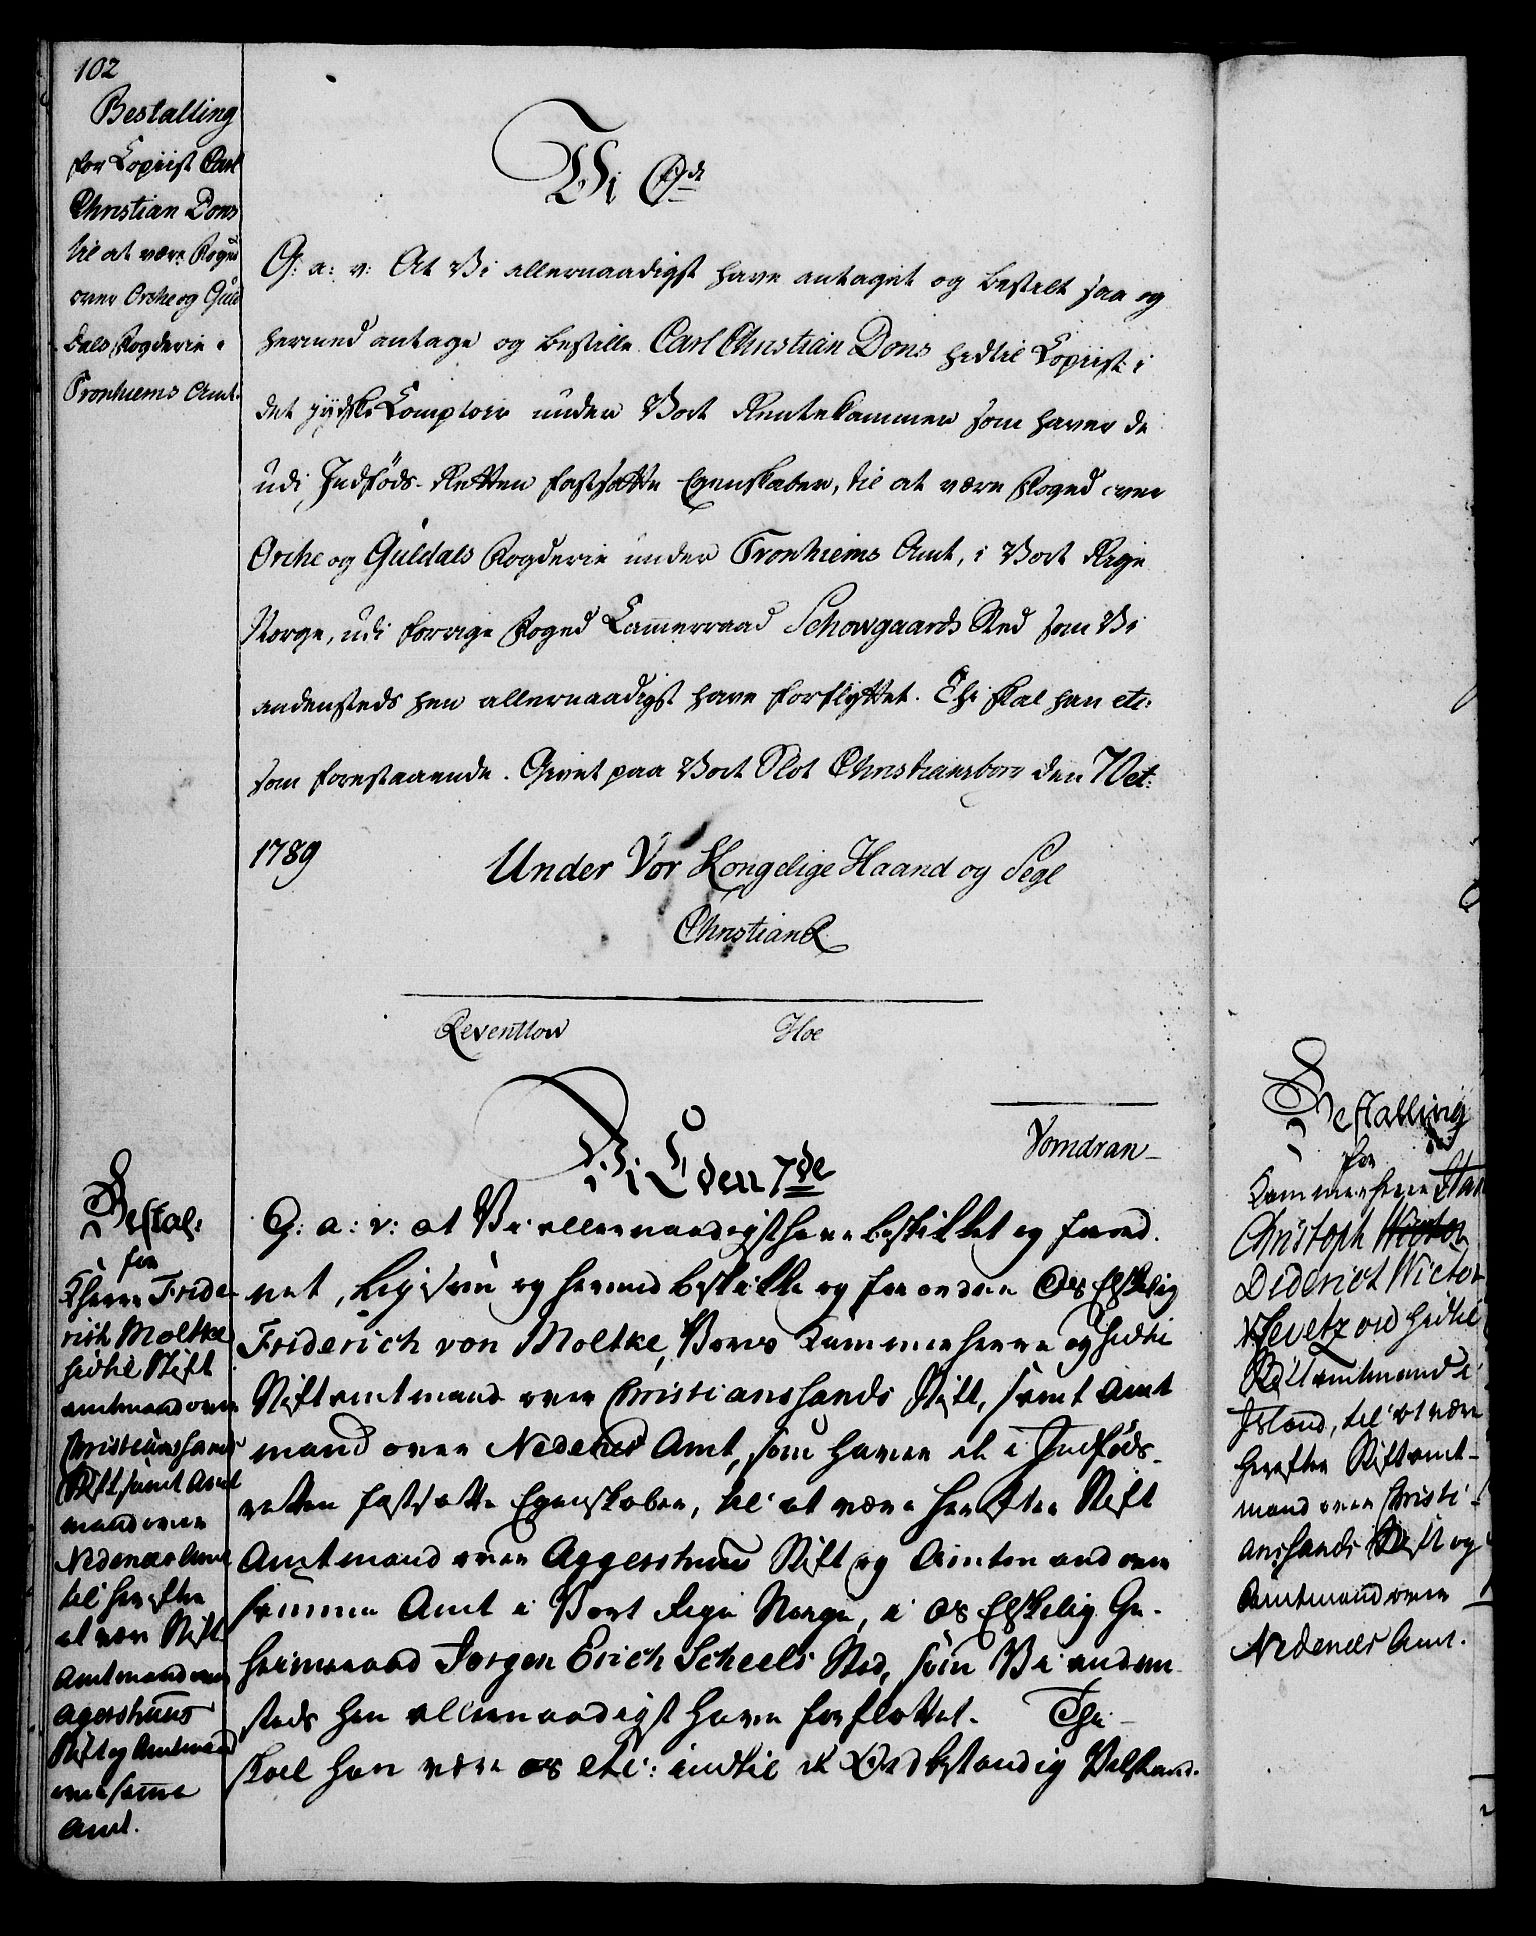 102
Bestalling
for Copiist Carl
Christian Dons
til at være Foged
over Orche og Gul
dals Fogderie i
Tronhiems Amt.
Vi C 7de
G: a: v: At Vi allernaadigst have antaget og bestilt saa og
hermed antage og bestille Carl Christian Dons hidtil Copiist i
det jydske Comptoir under Vort Rentekammer som haver de
udi Indføds-Retten fastsatte Egenskaber, til at være Foged over
Orche og Guldals Fogderie under Tronhiems Amt, i Vort Rige
Norge, udi forrige Foged Cammerraad Schowgaards Sted som Vi
andensteds hen allernaadigst have forflyttet. Thi skal han etc:
som forestaaende. Givet paa Vort Slot Christiansborg den 7 Oct:
1789
Under Vor Kongelige Haand og Segl
Christian R
Reventlow Hoe
Vomdran
Bestal:
for
Kherre Fride-
rich Moltke
hidtil Stift
amtmand over
Christianssands
Stift samt Amt
mand over
Nedenes Amt
til herefter
at være Stift
Amtmand over
Agershuus
Stift og Amtmand
over samme
Amt.
Vi C den 7de
G: a: v: at Vi allernaadigst have beskikket og forord
net, ligesom og hermed beskikke og forordne Os Elskelig
Friderich von Moltke, Vores Kammerherre og hidtil
Stiftamtmand over Christianssands Stift, samt Amt
mand over Nedenes Amt, som haver de i Indføds-
retten fastsatte Egenskaber, til at være herefter Stift
Amtmand over Aggershuus Stift og Amtmand over
samme Amt i Vort Rige Norge, i Os Elskelig Ge-
heimeraad Jørgen Erich Scheels Sted, som Vi anden
steds hen allernaadigst have forflottet. Thi
skal han være os etc: indtil et Ord bestandig Velstand.
Bestalling
for
Kammerherre
Christoph
Diderich Victor
Levetzow hidtil
Stiftamtmand i
Island, til at være
herefter Stiftamt-
mand over Christi-
anssands Stift og
Amtmand over
Nedenes Amt.